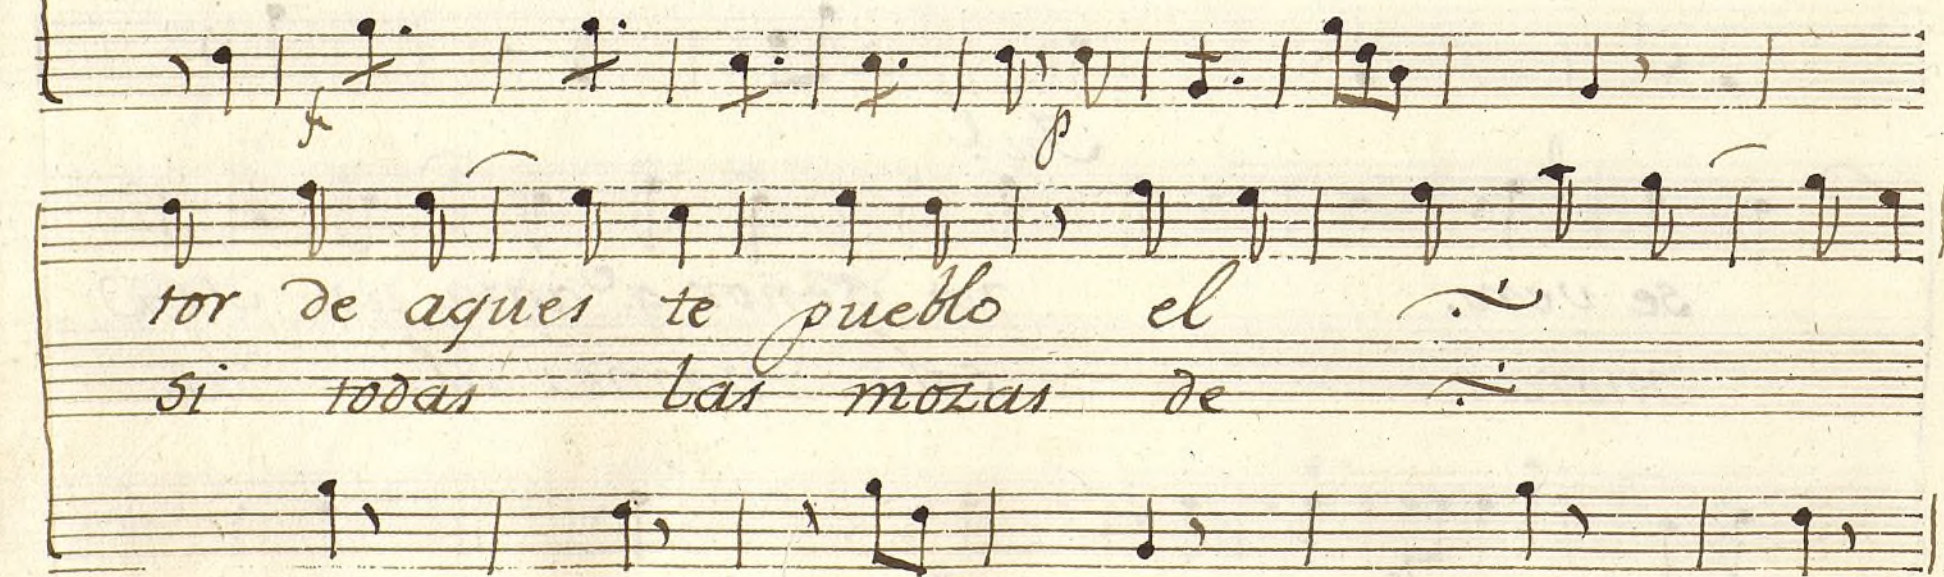 f p
tor de aques te pueblo el ·∕·
si todas las mozas de ·∕·